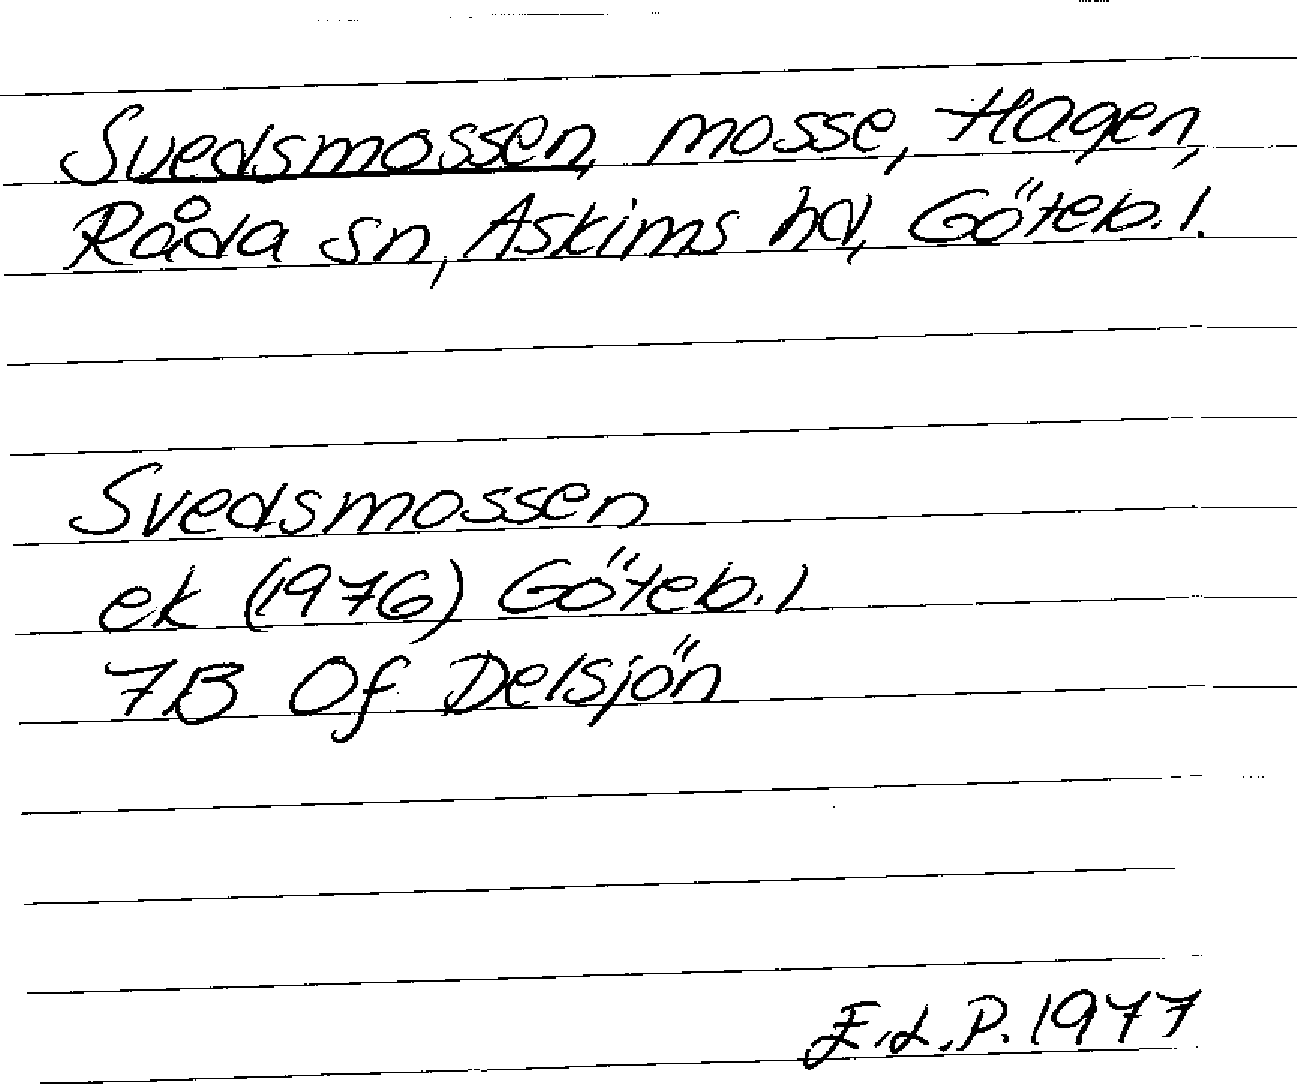 Svedsmossen, mosse, Hagen,
Råda sn, Askims hd, Göteb. l.
Svedsmossen
ek (1976) Göteb. l
7B 0f Delsjön
E.L.P. 1977